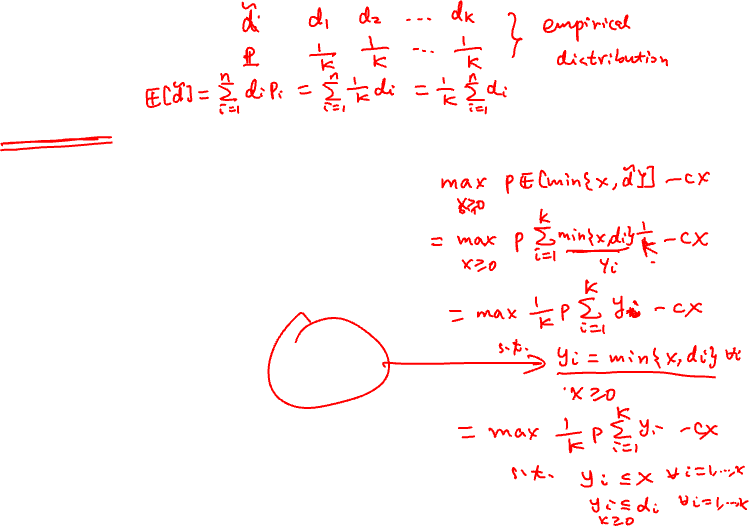 d̃ d₁ d₂ ... dₖ } empirical
ℙ 1/K 1/K ... 1/K distribution
𝔼[d̃] = ∑ᵢ₌₁ⁿ dᵢ Pᵢ = ∑ᵢ₌₁ⁿ 1/K dᵢ = 1/K ∑ᵢ₌₁ⁿ dᵢ
max x≥0 P 𝔼[min{x, d̃}] - cx
= max x≥0 P ∑ᵢ₌₁ᴷ min{x, dᵢ} 1/K - cx
yᵢ
= max 1/K P ∑ᵢ₌₁ᴷ yᵢ - cx
s.t. yᵢ = min{x, dᵢ} ∀i
x ≥ 0
= max 1/K P ∑ᵢ₌₁ᴷ yᵢ - cx
s.t. yᵢ ≤ x ∀i=1,...,K
yᵢ ≤ dᵢ ∀i=1,...,K
x ≥ 0